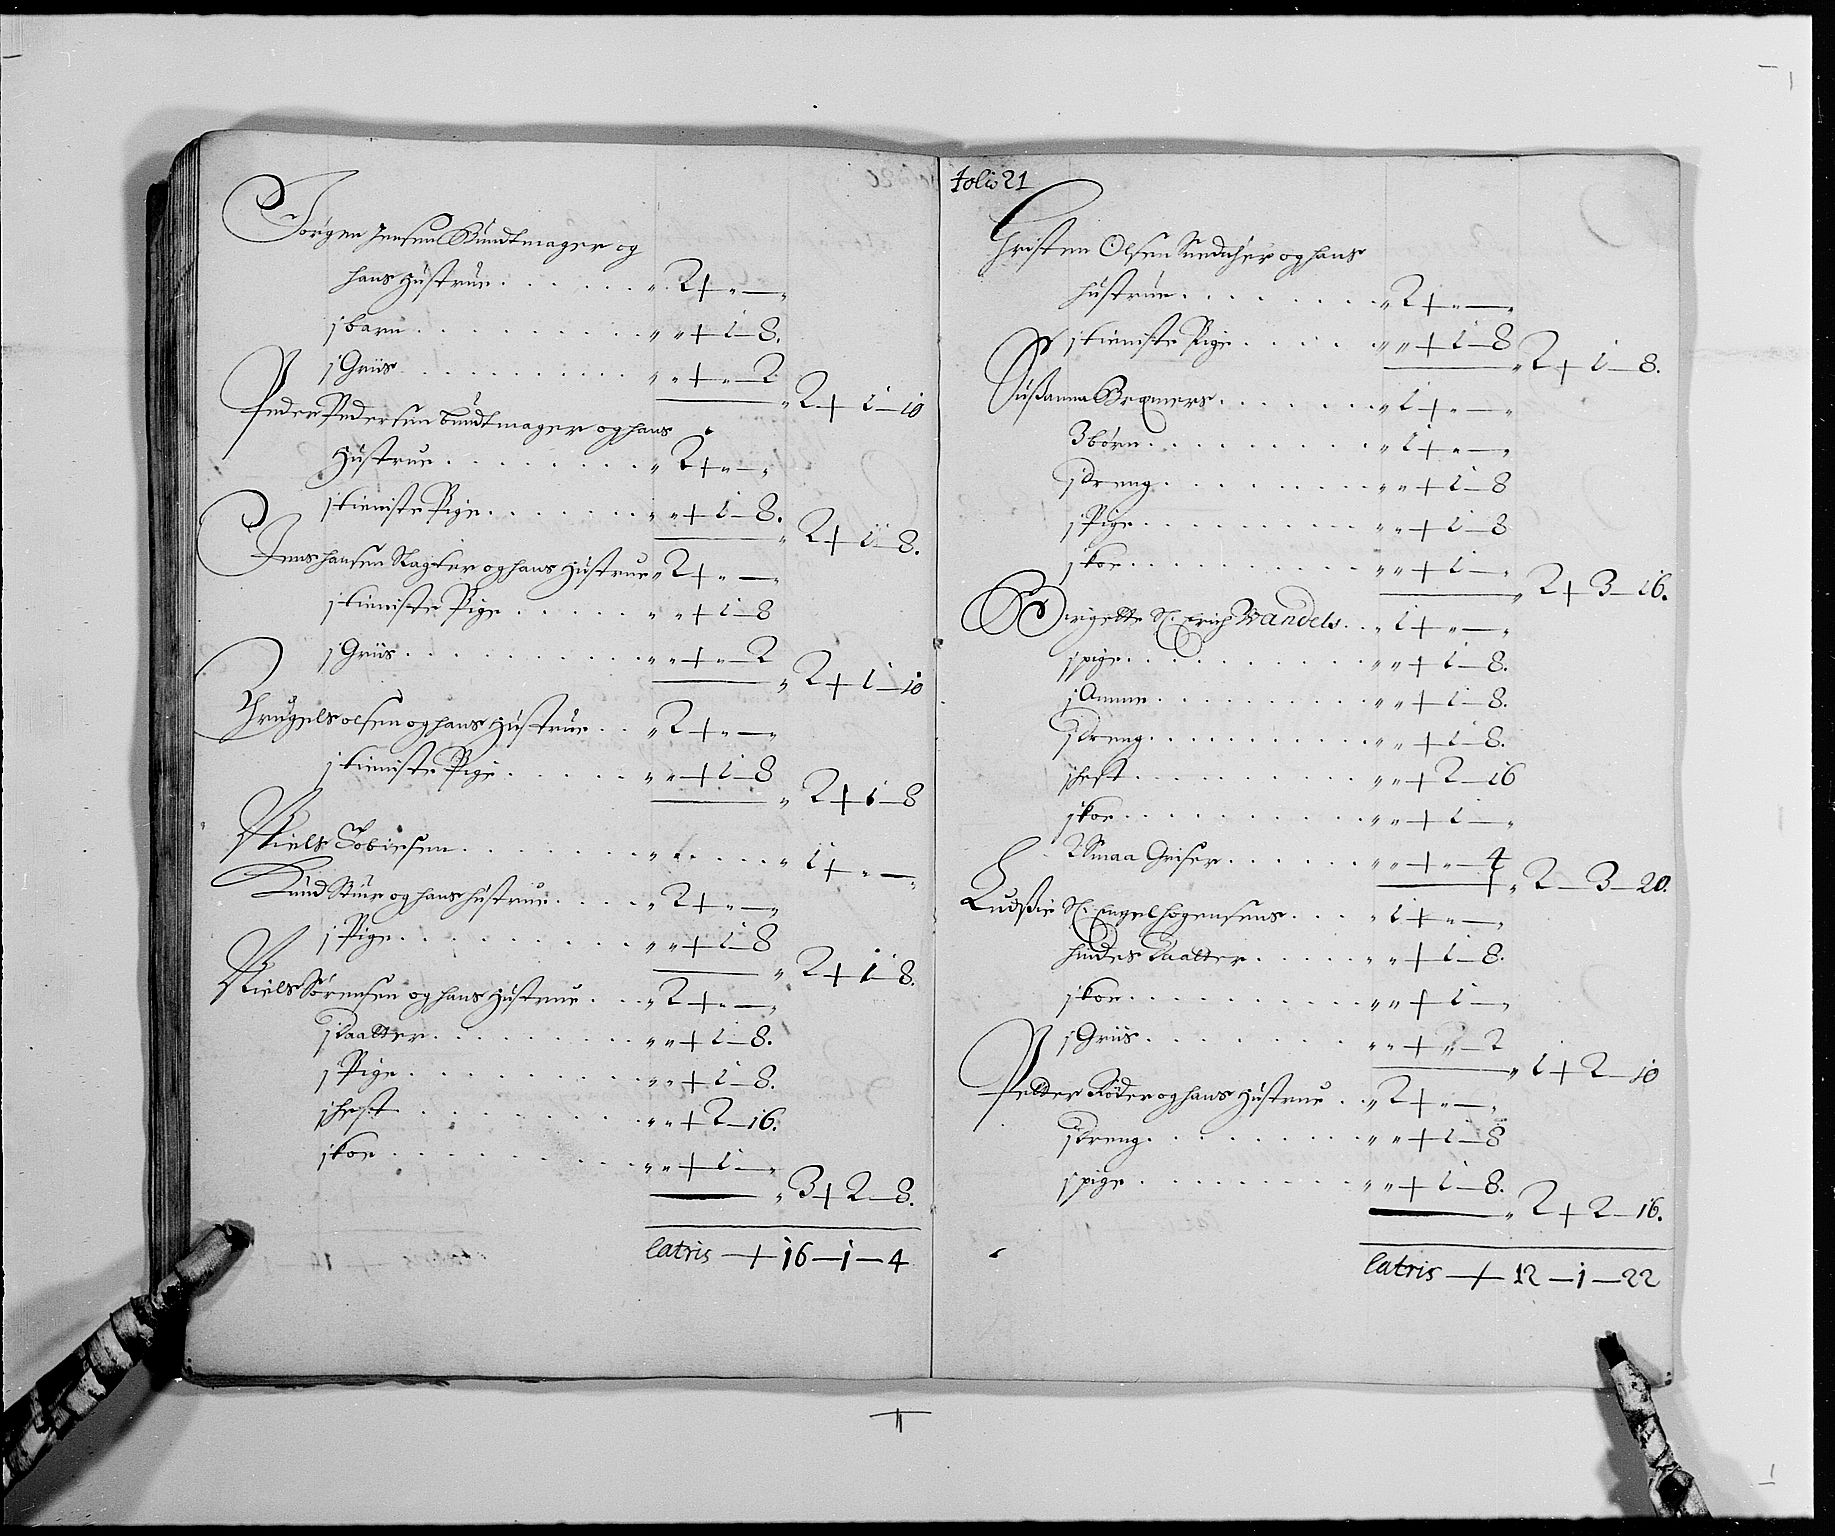 Jørgen Jensen Bundtmager og
hans Hustrue . . . . . . „ 2 + „ — „
j barn . . . . . . . . „ „ + 1 — 8.
j Griis . . . . . . . . „ „ + „ — 2
„ 2 + 1 — 10
Peder Pedersen bundtmager og hans
Hustrue . . . . . . . „ 2 + „ — „
j tieniste Pige . . . . . . „ „ + 1 — 8.
„ 2 + 1 — 8.
Jens hansen Slagter og hans Hustrue „ 2 + „ — „
j tieniste Pige . . . . . „ „ + 1 — 8
j Griis . . . . . . . . „ „ + „ — 2
„ 2 + 1 — 10
Thrugels olsen og hans Hustrue . . „ 2 + „ — „
j tieniste Pige . . . . . „ „ + 1 — 8
„ 2 + 1 — 8
Niels Tobiesen . . . . . . „ . . . . „ 1 + „ — „
Knud Stuer og hans hustrue . . . . „ 2 + „ — „
j Pige . . . . . . . . „ „ + 1 — 8
„ 2 + 1 — 8.
Niels Sørensen og hans Hustrue . . . „ 2 + „ — „
j daatter . . . . . . . . „ „ + 1 — 8.
j Pige . . . . . . . . „ „ + 1 — 8.
j hest . . . . . . . . „ „ + 2 — 16.
j koe . . . . . . . . „ „ + 1 — „
„ 3 + 2 — 8.
latris — + 16 — 1 — 4
folio 21
Christen Olsen og hans
hustrue . . . . . . . „ 2 + „ — „
j tieniste Pige . . . . . „ „ + 1 — 8
„ 2 + 1 — 8.
Sußanna Bremers . . . . . . „ 1 + „ — „
3 børn . . . . . . . . „ 1 + „ — „
j dreng . . . . . . . . „ „ + 1 — 8
j Pige . . . . . . . . „ „ + 1 — 8
j koe . . . . . . . . „ „ + 1 — „
„ 2 + 3 — 16.
Birgette Sl: Erich Wandels . . „ 1 + „ — „
j pige . . . . . . . . „ „ + 1 — 8.
j Amme . . . . . . . . „ „ + 1 — 8.
j dreng . . . . . . . . „ „ + 1 — 8.
j hest . . . . . . . . „ „ + 2 — 16
j koe . . . . . . . . „ „ + 1 — „
2 Smaa Griser . . . . . . „ „ + „ — 4
„ 2 — 3 — 20.
Ludßie Sl: Engelhogensens . . . . „ 1 + „ — „
hindes daatter . . . . . „ „ + 1 — 8.
j koe . . . . . . . . „ „ + 1 — „
j Griis . . . . . . . . „ „ + „ — 2
„ 1 + 2 — 10
Petter Röder og hans Hustrue . . „ 2 + „ — „
j dreng . . . . . . . . „ „ + 1 — 8
j pige . . . . . . . . „ „ + 1 — 8.
„ 2 + 2 — 16.
latris — + 12 — 1 — 22